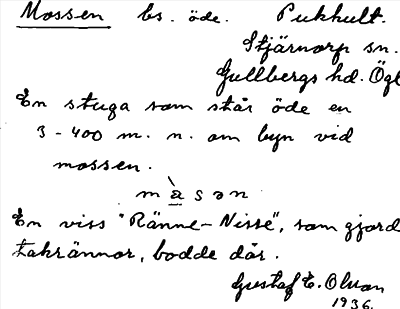 Mossen bs. öde. Pukhult.
Stjärnorp sn.
Gullbergs hd. Ögl
En stuga som står öde en
3-400 m. n. om byn vid
mossen.
m a s ə n
En viss "Ränne-Nisse", som gjord
takrännor, bodde där.
Gustaf E. Olson
1936.